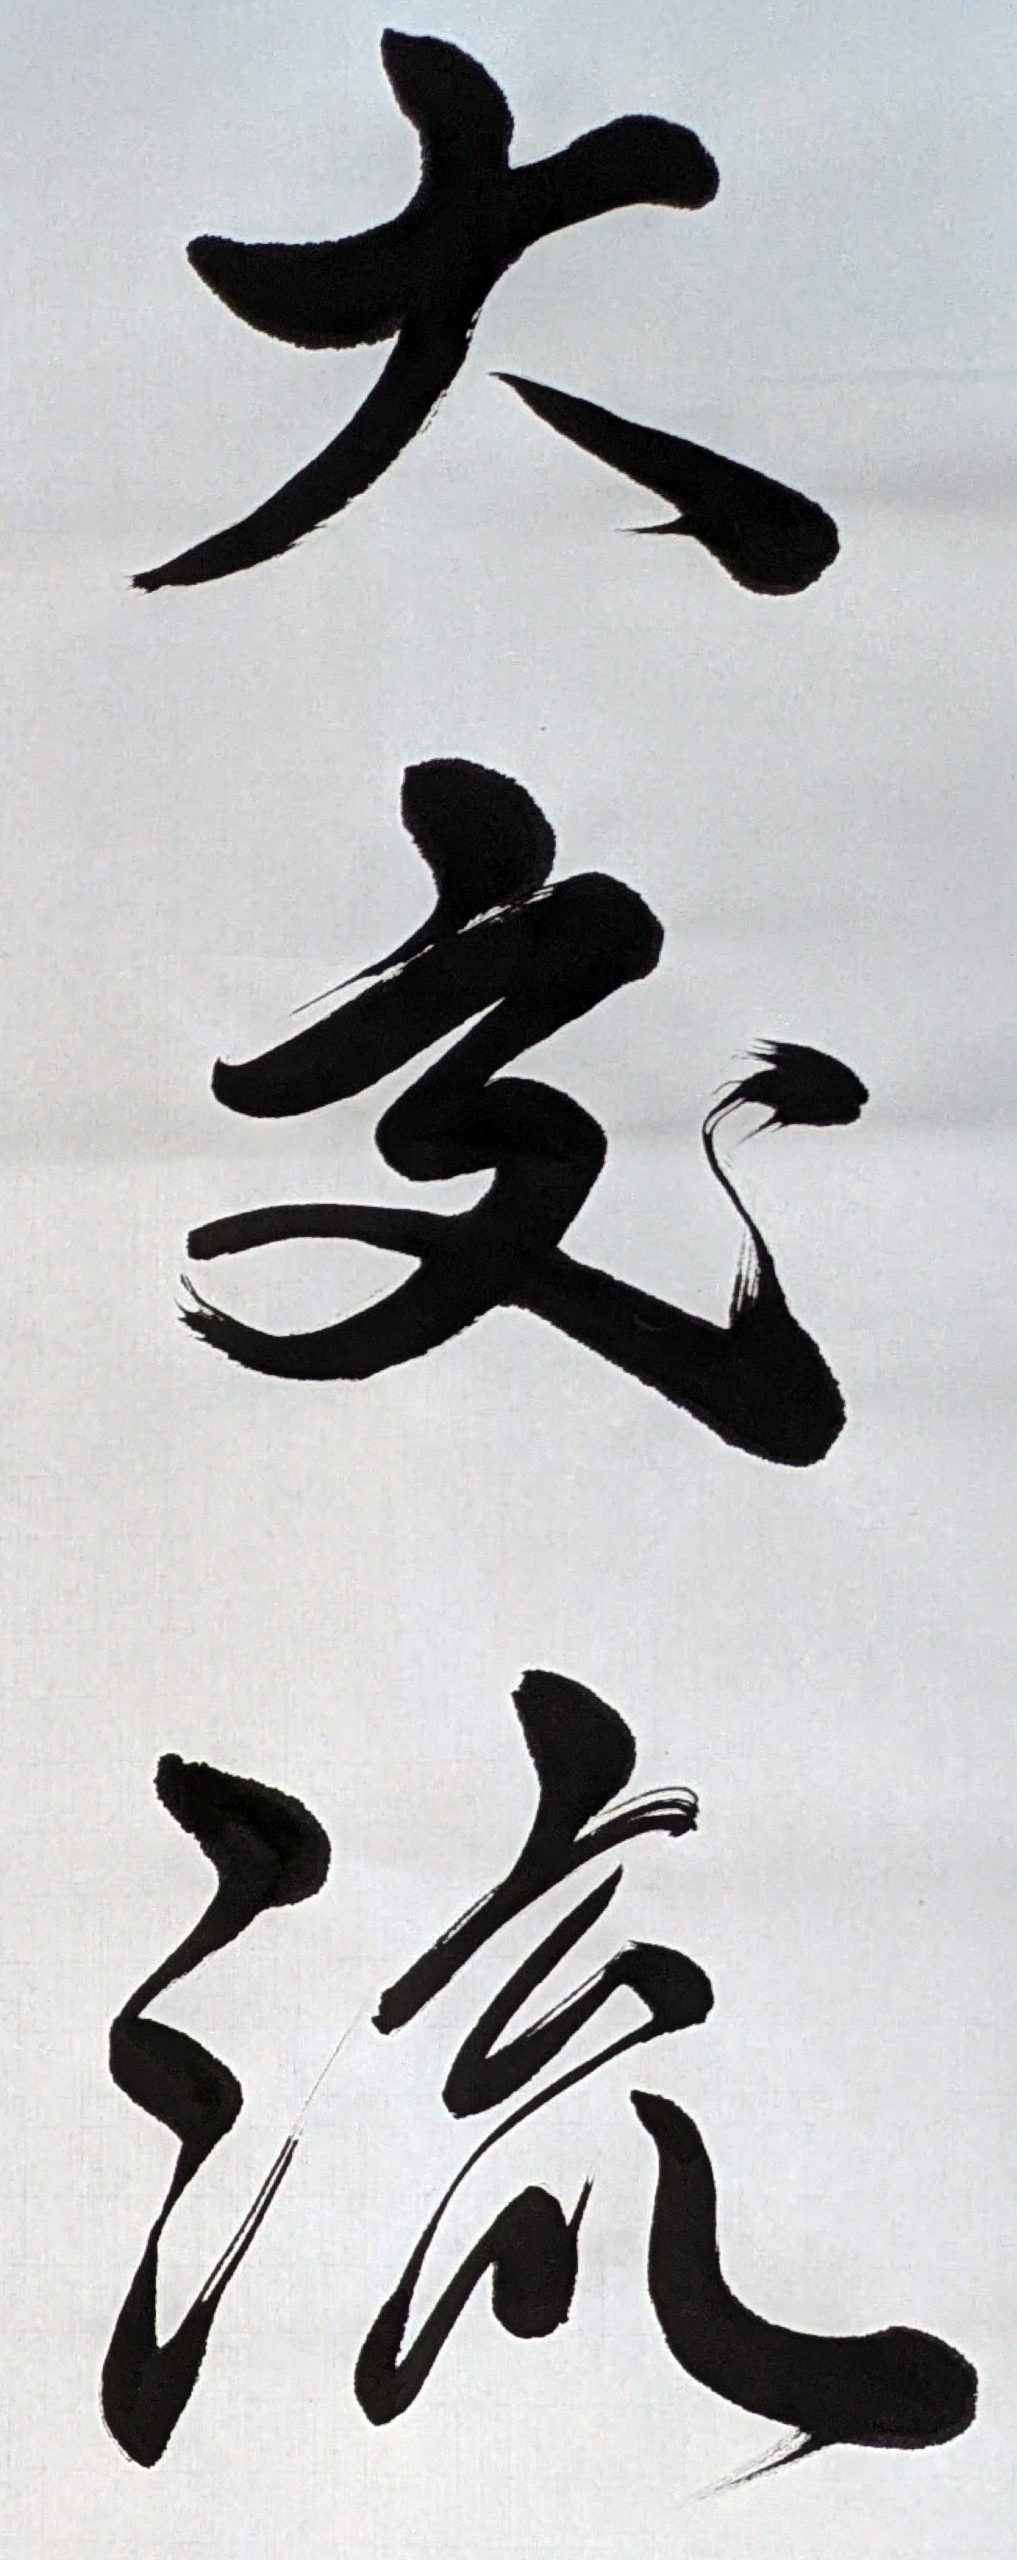 大交流